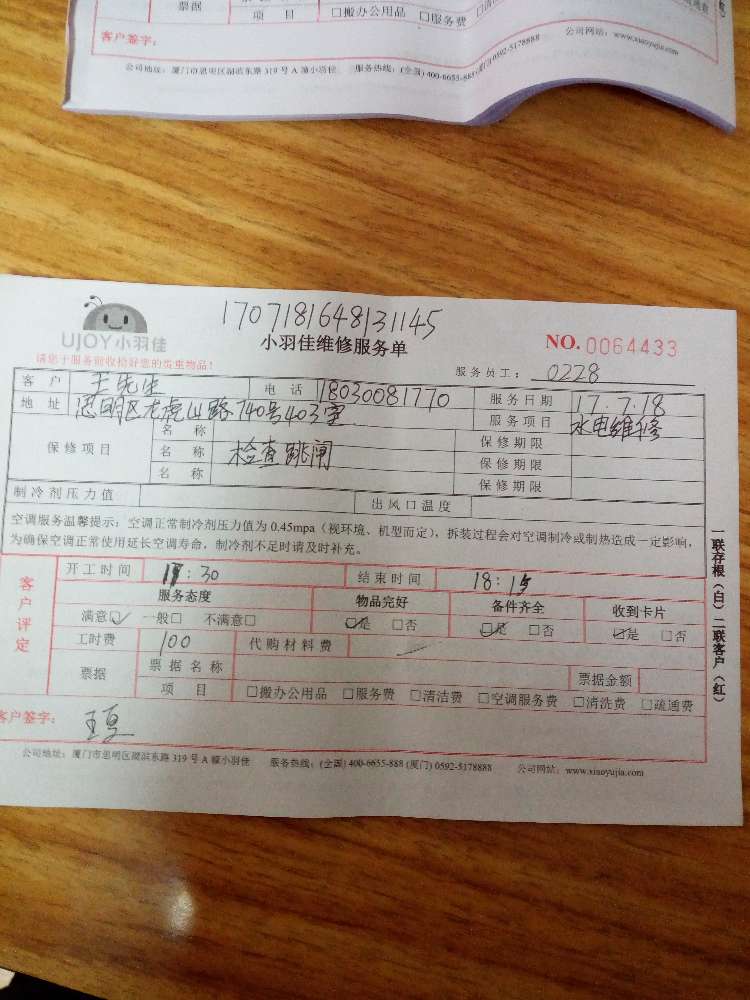 票据
项 目 □搬办公用品 □服务费
客户签字:
公司地址:厦门市思明区湖滨东路 319 号 A 幢小羽佳 服务热线:(全国) 400-6655-888 (厦门) 0592-5178888 公司网站:www.xiaoyujia.com
1707181648131145
UJOY小羽佳
小羽佳维修服务单
NO. 0064433
请您于服务前收拾好您的贵重物品!
服务员工: 0228
客 户 王先生 电 话 18030081770 服务日期 17.7.18
地 址 思明区龙虎山路740号403室 服务项目 水电维修
保修项目 名 称 保修期限
名 称 检查跳闸 保修期限
名 称 保修期限
制冷剂压力值 出风口温度
空调服务温馨提示:空调正常制冷剂压力值为 0.45mpa(视环境、机型而定),拆装过程会对空调制冷或制热造成一定影响,
为确保空调正常使用延长空调寿命,制冷剂不足时请及时补充。
客户评定
开工时间 :30 结束时间 18:15
服务态度 物品完好 备件齐全 收到卡片
满意☑ 一般□ 不满意□ ☑是 □否 ☑是 □否 ☑是 □否
工时费 100 代购材料费
票据 票据名称 票据金额
项 目 □搬办公用品 □服务费 □清洁费 □空调服务费 □清洗费 □疏通费
客户签字: 王
公司地址:厦门市思明区湖滨东路 319 号 A 幢小羽佳 服务热线:(全国) 400-6655-888 (厦门) 0592-5178888 公司网站:www.xiaoyujia.com
一联存根(白) 二联客户(红)